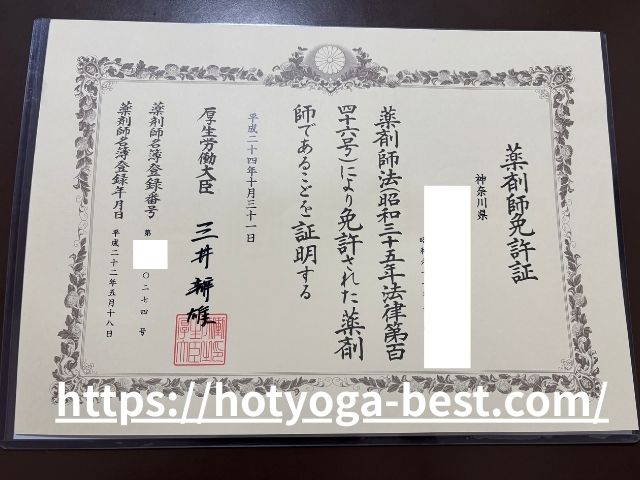 薬剤師免許証
神奈川県
薬剤師法(昭和三十五年法律第百
四十六号)により免許された薬剤
師であることを証明する
平成二十四年十月三十一日
厚生労働大臣 三井辨雄
薬剤師名簿登録番号 第 〇二七四号
薬剤師名簿登録年月日 平成二十二年五月十八日
https://hotyoga-best.com/